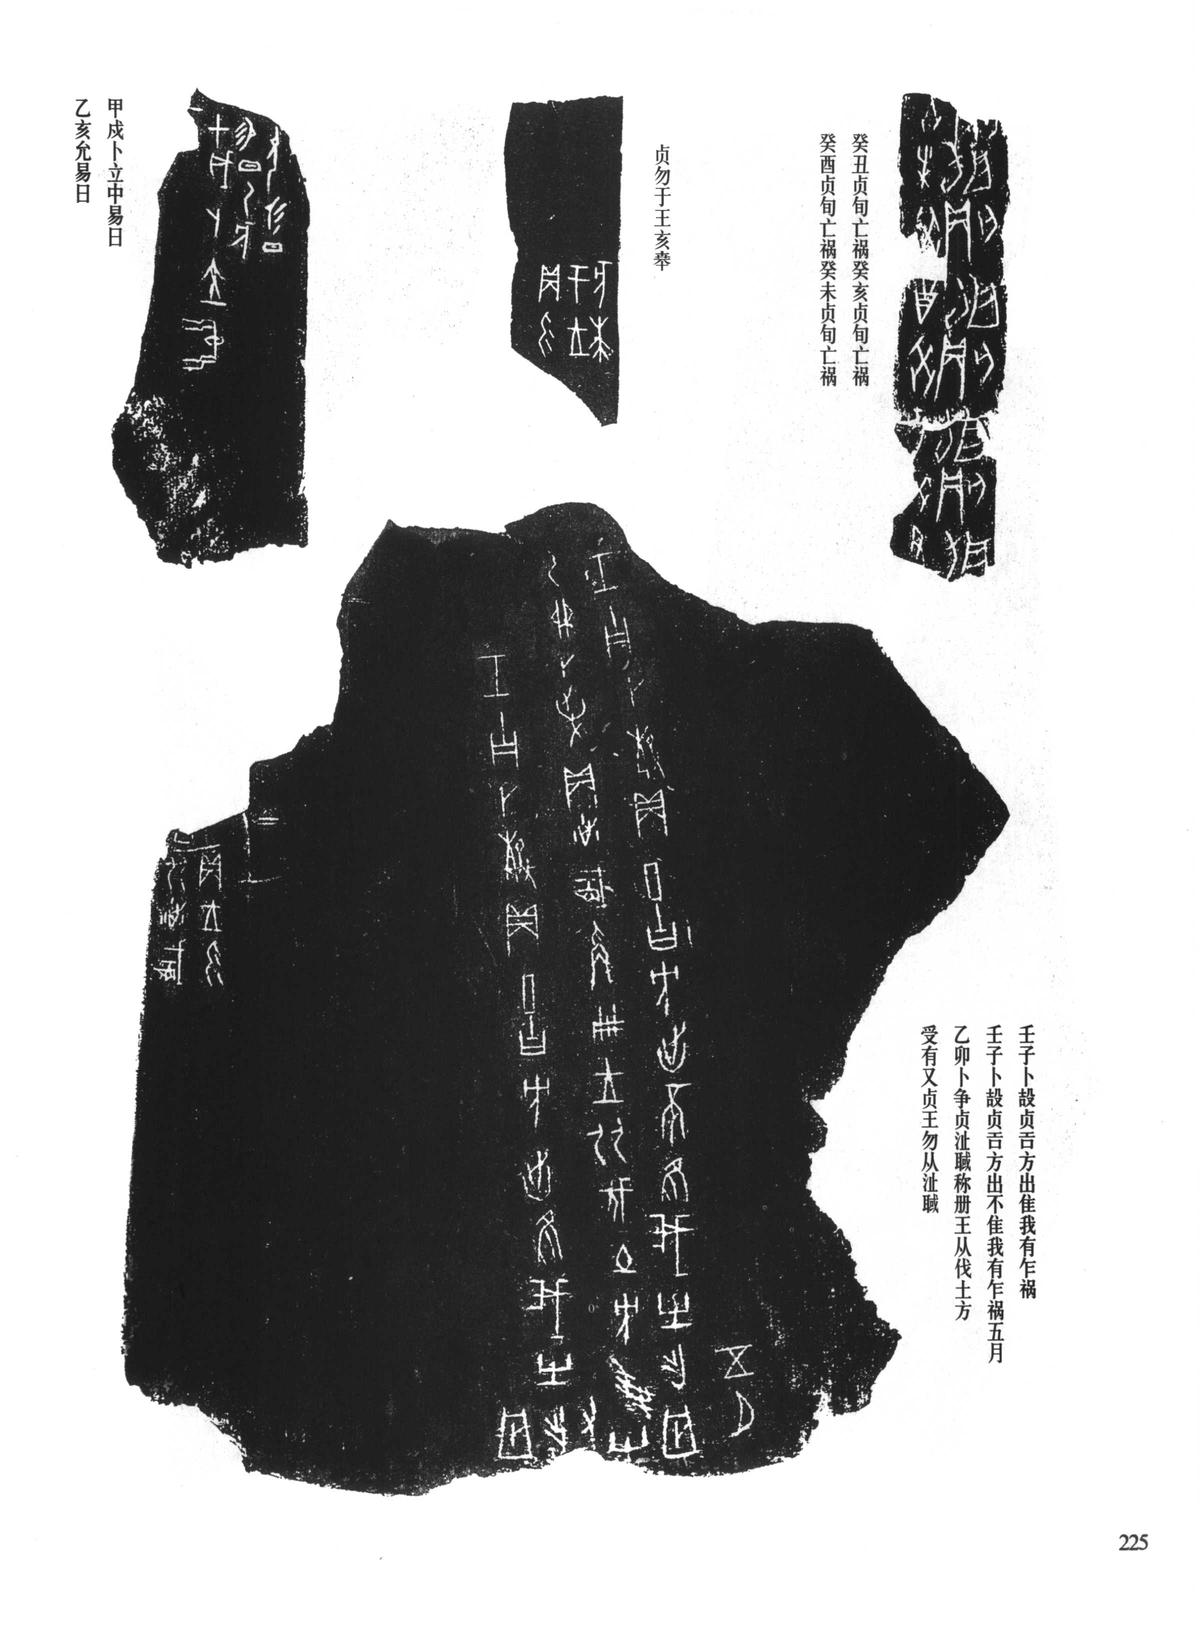 癸丑贞旬亡祸癸亥贞旬亡祸
癸酉贞旬亡祸癸未贞旬亡祸
贞勿于王亥𠦪
甲戍卜立中易日
乙亥允易日
壬子卜㱿贞𢀛方出隹我有乍祸
壬子卜㱿贞𢀛方出不隹我有乍祸五月
乙卯卜争贞沚䤋称册王从伐土方
受有又贞王勿从沚䤋
225